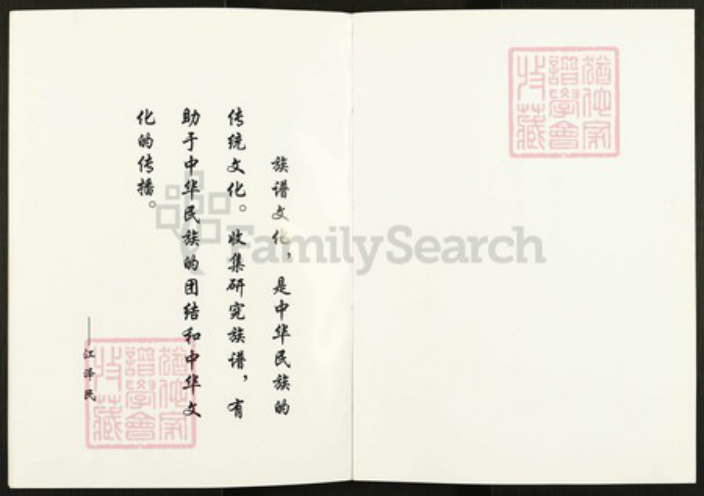 族谱文化，是中华民族的
传统文化。收集研究族谱，有
助于中华民族的团结和中华文
化的传播。
——江泽民
FamilySearch